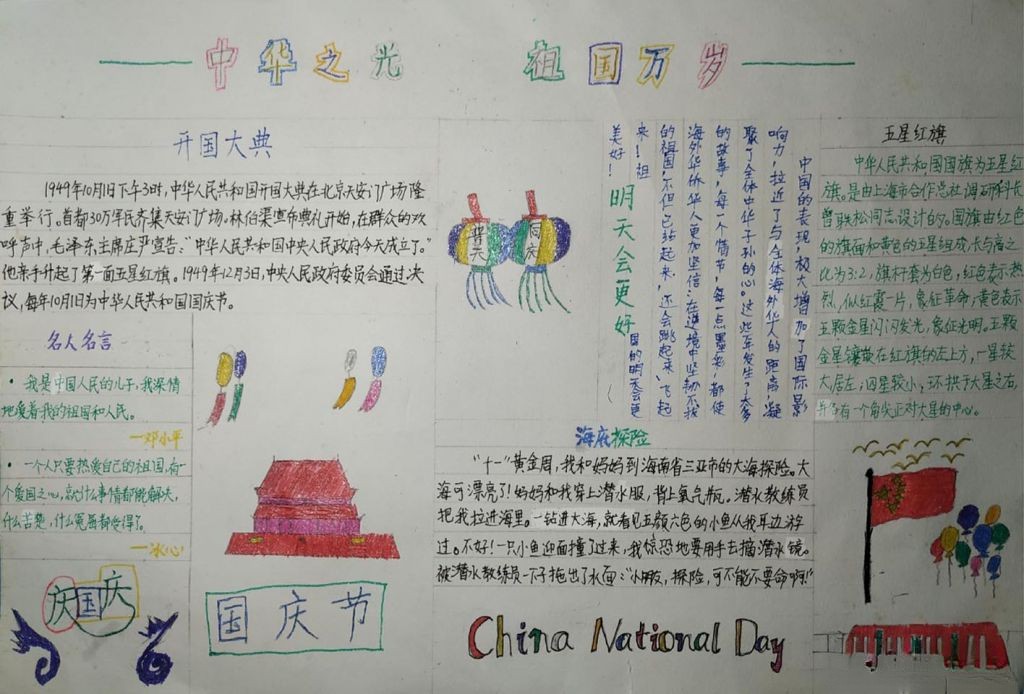 中华之光 祖国万岁
开国大典
1949年10月1日下午3时，中华人民共和国开国大典在北京天安门广场隆
重举行。首都30万军民齐集天安门广场。林伯渠宣布典礼开始，在群众的欢
呼声中，毛泽东主席庄严宣告：“中华人民共和国中央人民政府今天成立了。”
他亲手升起了第一面五星红旗。1949年12月3日，中央人民政府委员会通过决
议，每年10月1日为中华人民共和国国庆节。
名人名言
·我是中国人民的儿子，我深情
地爱着我的祖国和人民。
—邓小平
·一个人只要热爱自己的祖国，有一
个爱国之心，就什么事情都能解决，
什么苦楚，什么冤屈都受得了。
—冰心
庆国庆
国庆节
普天
同庆
明天会更好
中国的表现，极大增加了国际影
响力，拉近了与全体海外华人的距离，凝
聚了全体中华子孙的心。这些年发生了太多
的故事，每一个情节，每一点墨彩，都使
海外华侨、华人更加坚信：在逆境中坚韧不拔
的祖国，不但已站起来，还会跳起来、飞起
来！祖国的明天会更
美好！
海底探险
“十一”黄金周，我和妈妈到海南省三亚市的大海探险。大
海可漂亮了！妈妈和我穿上潜水服，背上氧气瓶。潜水教练员
把我拉进海里。一钻进大海，就看见五颜六色的小鱼从我耳边游
过。不好！一只小鱼迎面撞了过来，我惊恐地要用手去摘潜水镜。
被潜水教练员一下子拖出了水面：“小朋友，探险，可不能不要命啊！”
China National Day
五星红旗
中华人民共和国国旗为五星红
旗。是由上海市合作总社调研科长
曾联松同志设计的。国旗由红色
的旗面和黄色的五星组成，长与高之
比为3:2，旗杆套为白色，红色表示热
烈，似红霞一片，象征革命；黄色表示
五颗金星闪闪发光，象征光明。五颗
金星镶嵌在红旗的左上方，一星较
大居左；四星较小，环拱于大星之右，
并各有一个角尖正对大星的中心。